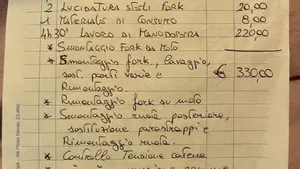 2 LUCIDATURA STELI FORK 20,00
1 MATERIALI DI CONSUMO 8,00
4h30' LAVORO DI MANODOPERA 220,00
* SMONTAGGIO FORK DA MOTO
* Smontaggio fork, lavaggio,
sost. parti varie e € 330,00
Rimontaggio.
* Rimontaggio fork su moto
* Smontaggio ruota posteriore,
sostituzione parastrappi e
Rimontaggio ruota.
* Controllo Tensione catena